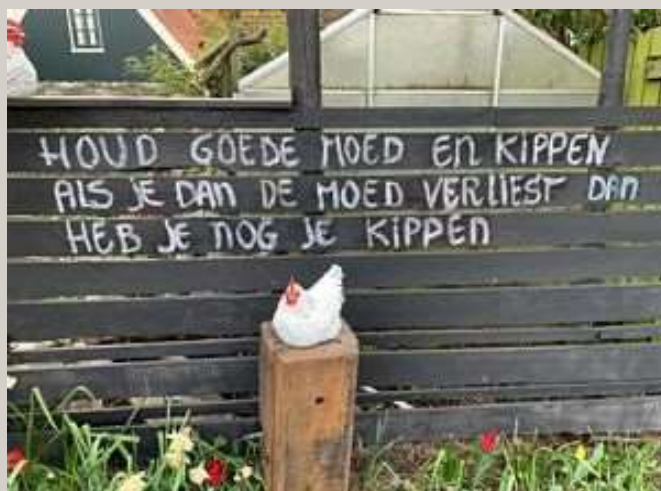 HOUD GOEDE MOED EN KIPPEN
ALS JE DAN DE MOED VERLIEST DAN
HEB JE NOG JE KIPPEN